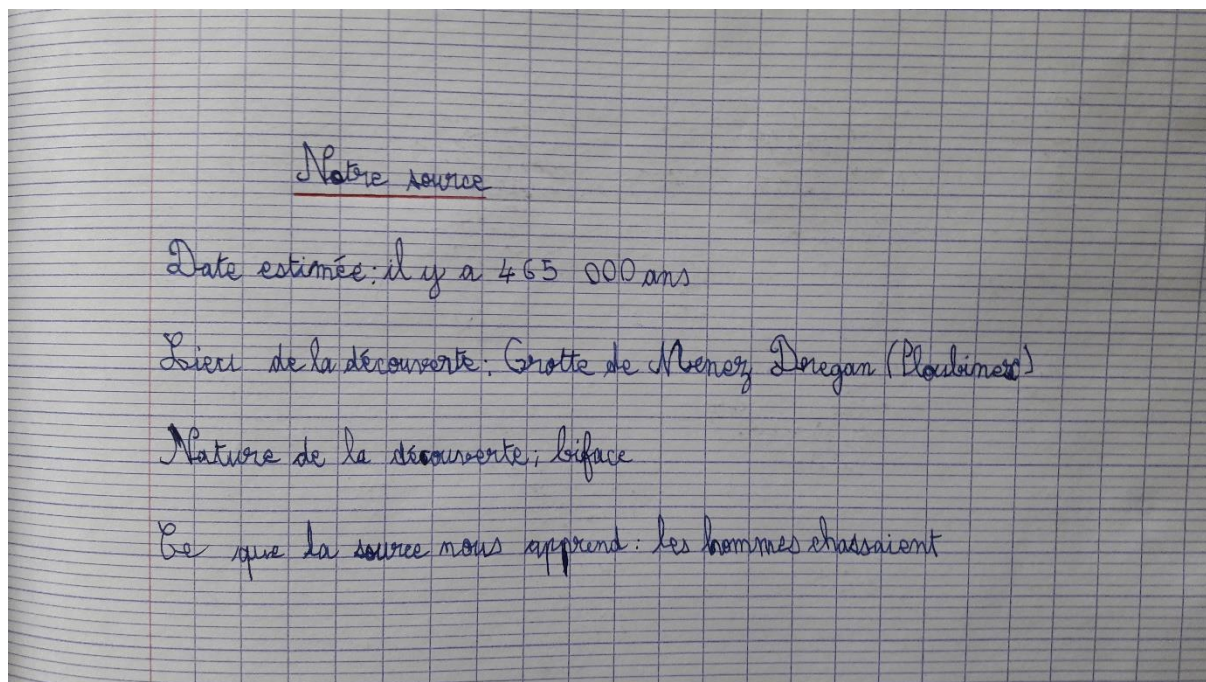 Notre source
Date estimée : il y a 465 000 ans
Lieu de la découverte : Grotte de Menez Dregan (Ploubinec)
Nature de la découverte : biface
Ce que la source nous apprend : les hommes chassaient